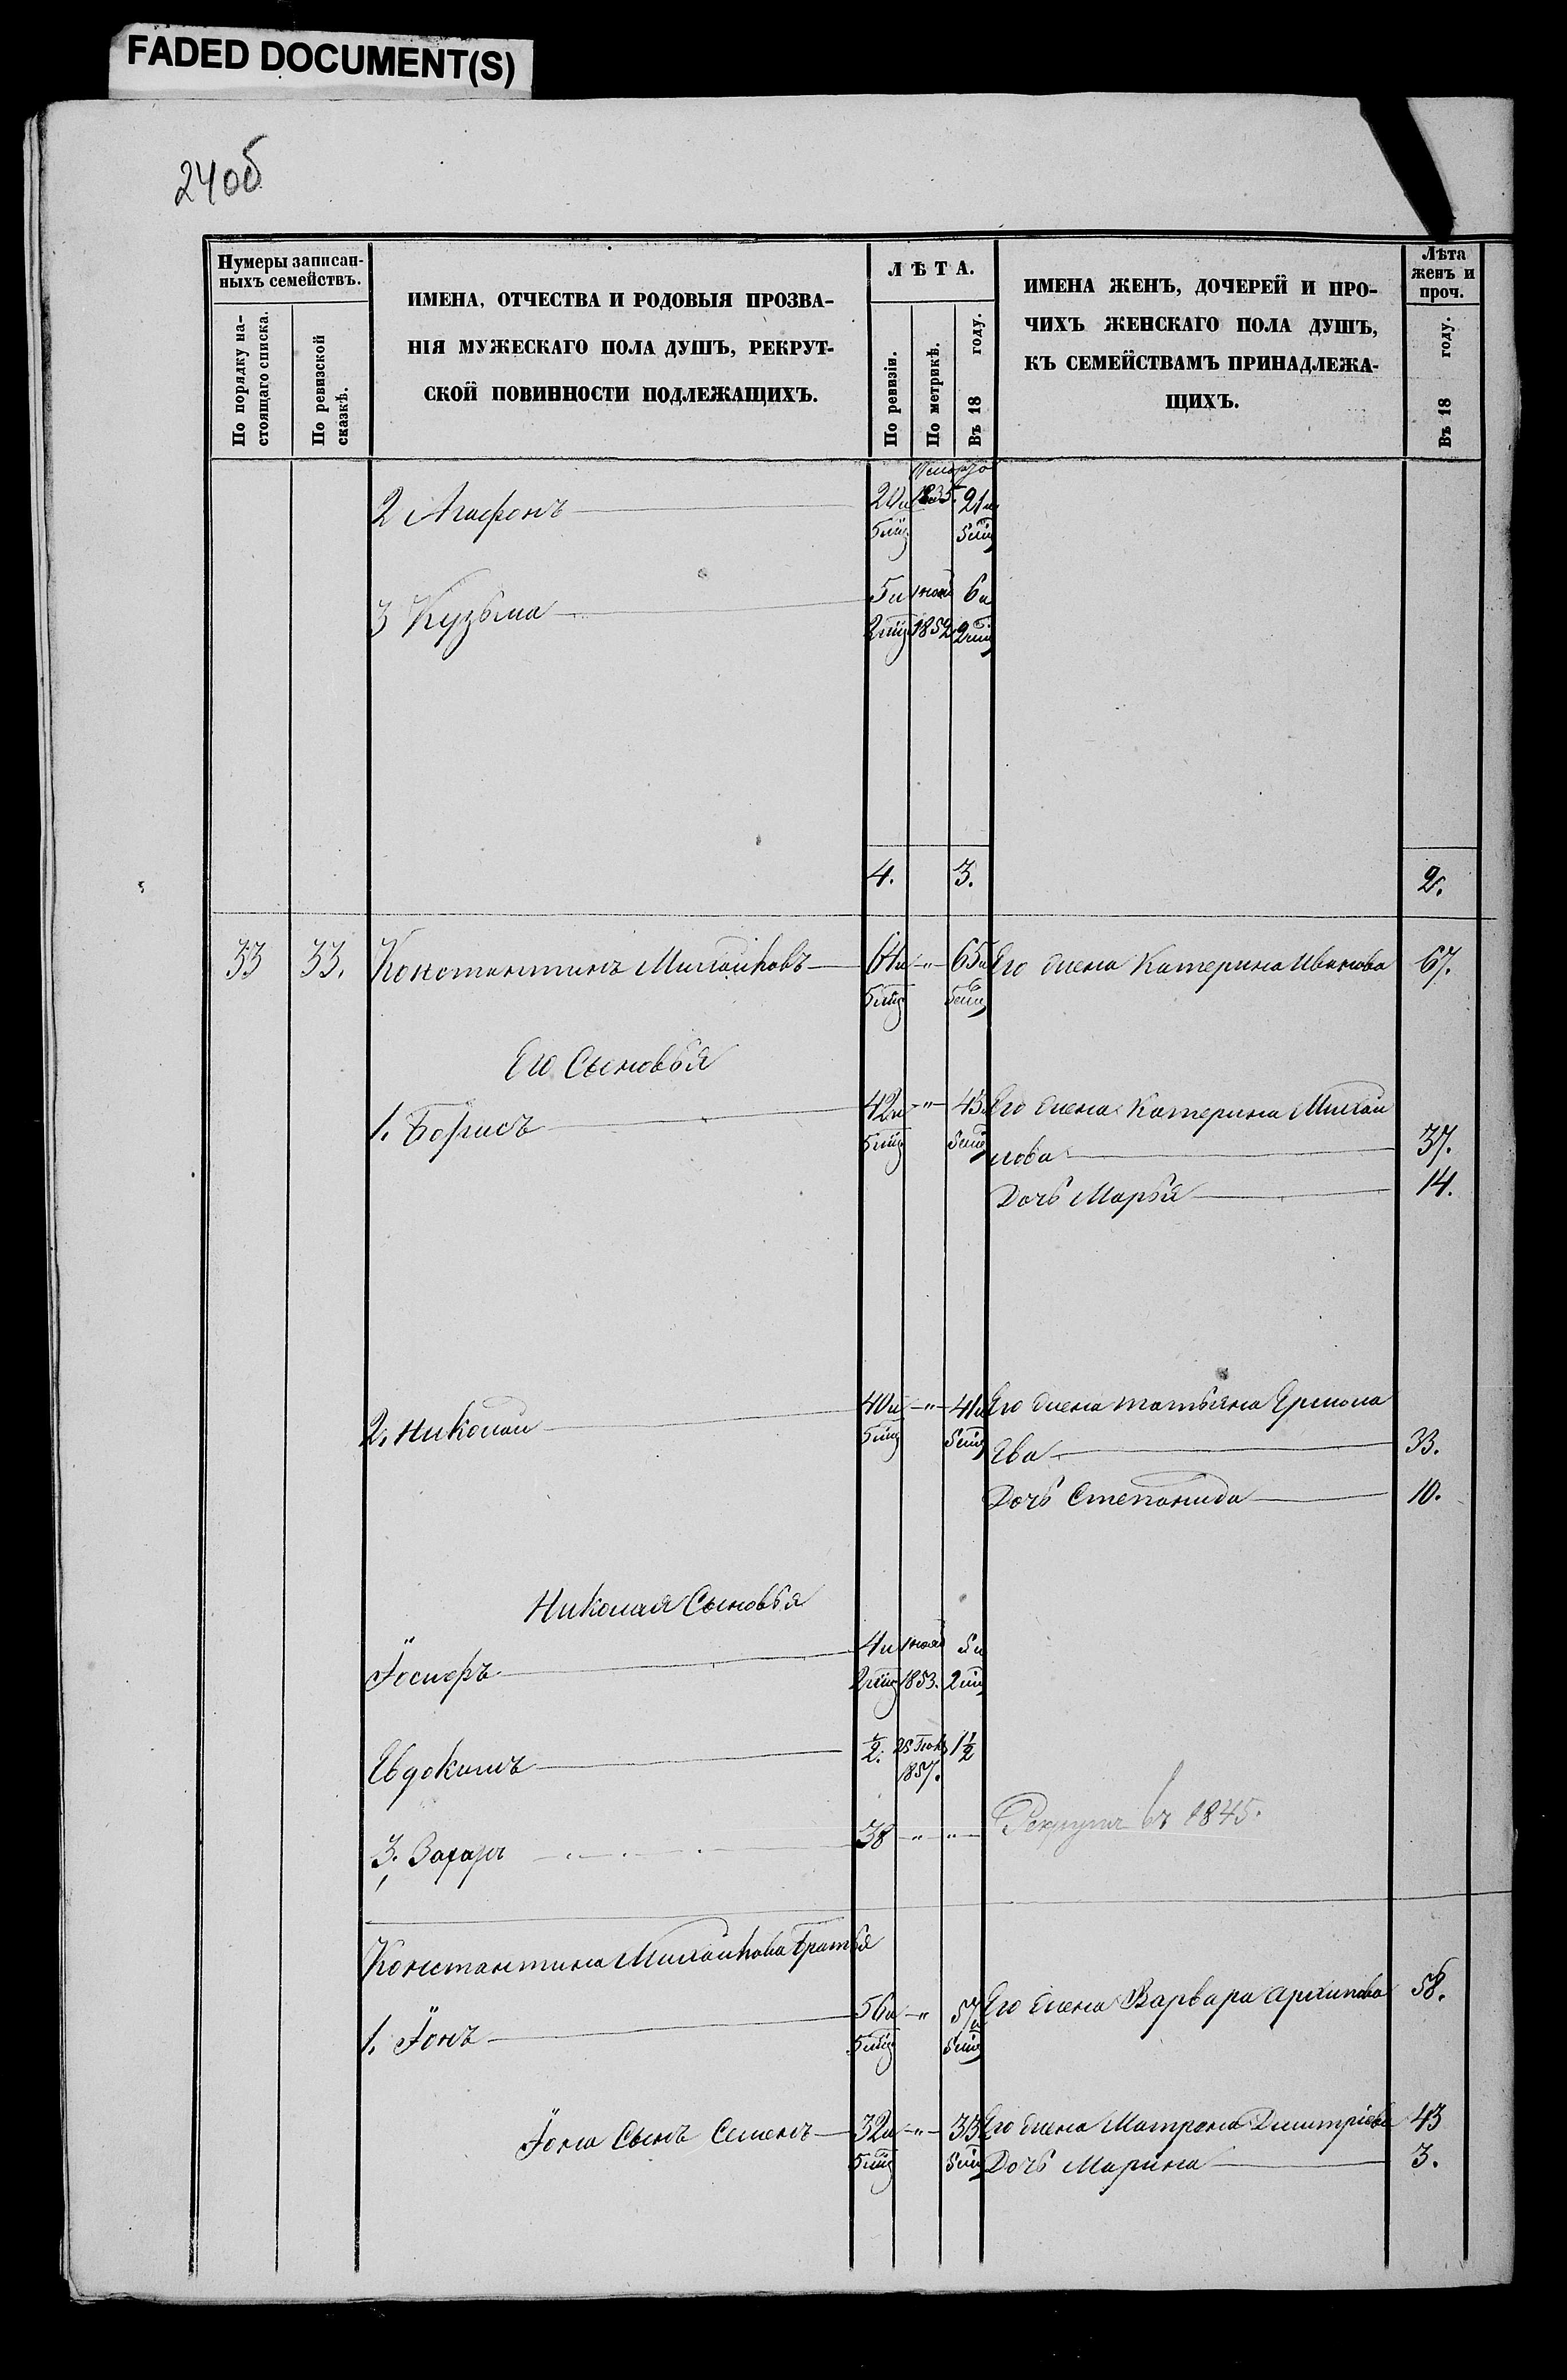 FADED DOCUMENT(S)
24об
Нумеры записан-
ныхъ семействъ.
По порядку на-
стоящаго списка.
По ревизской
сказкѣ.
ИМЕНА, ОТЧЕСТВА И РОДОВЫЯ ПРОЗВА-
НІЯ МУЖЕСКАГО ПОЛА ДУШЪ, РЕКРУТ-
СКОЙ ПОВИННОСТИ ПОДЛЕЖАЩИХЪ.
ЛѢТА.
По ревизіи.
По метрикѣ.
Въ 18 году.
ИМЕНА ЖЕНЪ, ДОЧЕРЕЙ И ПРО-
ЧИХЪ ЖЕНСКАГО ПОЛА ДУШЪ,
КЪ СЕМЕЙСТВАМЪ ПРИНАДЛЕЖА-
ЩИХЪ.
Лѣта
женъ и
проч.
Въ 18 году.
2 Агафонъ 20и 1835. 21и
5мц 5мц
3 Кузьма 5и 6и
2мц 1852 2мц
4. 3. 2.
33 33. Константинъ Михайловъ 64и " 65и Его жена Катерина Иванова 67.
5мц 5мц
Его Сыновья
1. Борисъ 42и " 43и Его жена Катерина Михай
5мц 5мц лова 37.
Дочь Марья 14.
2. Николай 40и " 41и Его жена татьяна Ермола
5мц 5мц Ева 33.
Дочь Степанида 10.
Николая Сыновья
Іосифъ 4и 5и
2мц 1853. 2мц
Евдокимъ ½. 25 1½
1857.
3. Захаръ 38 " " Рекрутъ въ 1845.
Константина Михайлова братья
1. Іонъ 56и " 57и Его жена Варвара архипова 58.
5мц 5мц
Іона Сынъ Семенъ 32и " 33 Его жена Матрона Дмитріева 43
5мц 5мц Дочь Марина 3.